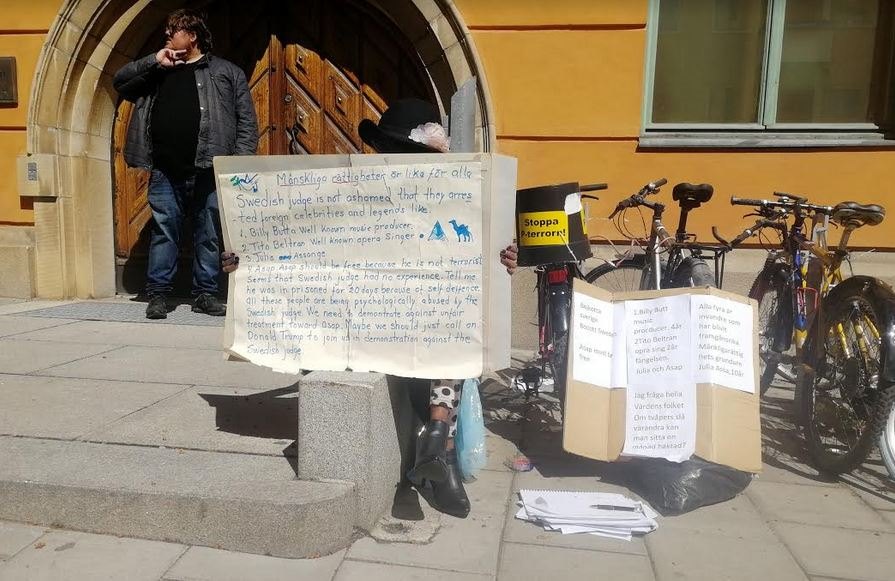 Mänskliga rättigheter är lika för alla
Swedish judge is not ashamed that they arres
ted foreign celebrities and legends like
1. Billy Butt a Well known music producer.
2. Tito Beltran Well known opera Singer.
3. Julia Assange
4. Asap. Asap should be free because he is not terrorist
seems that Swedish judge had no experience. Tell me
he was in prisoned for 20 days because of self defence.
all these people are being psychologically abused by the
Swedish judge. We need to demonstrate against unfair
treatment toward Asap. Maybe we should just call on
Donald Trump to join us in demonstration against the
Swedish judge
Stoppa
P-terrorn!
sverige
Asap must be
free
1.Billy Butt
music
procducer. 4år
2Tito Beltrán
opra sing 2år
fängelsen.
Julia och Asap
Jag fråga hella
Världens folket
Om tvåpers slå
varandra kan
man sitta en
månad häktad?
Alla fyra är
invandre som
har blivit
framgångsrika
Mänkligarättig
hets grundare
Julia Asap,10år